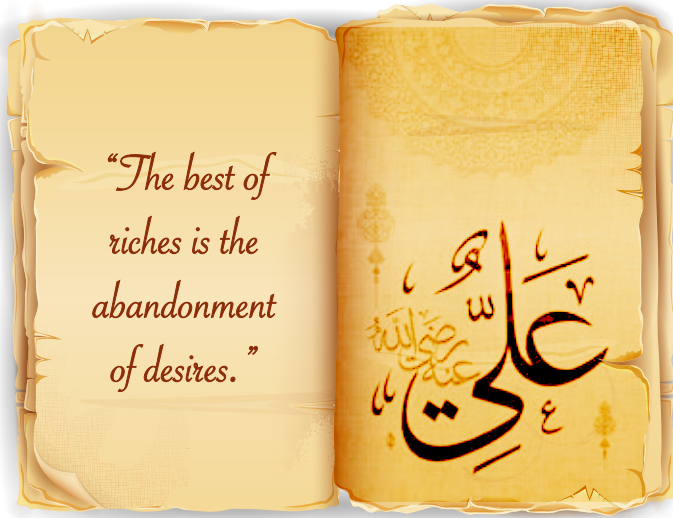 “The best of
riches is the
abandonment
of desires.”
عَلِيٌّ
رضي الله
عنه